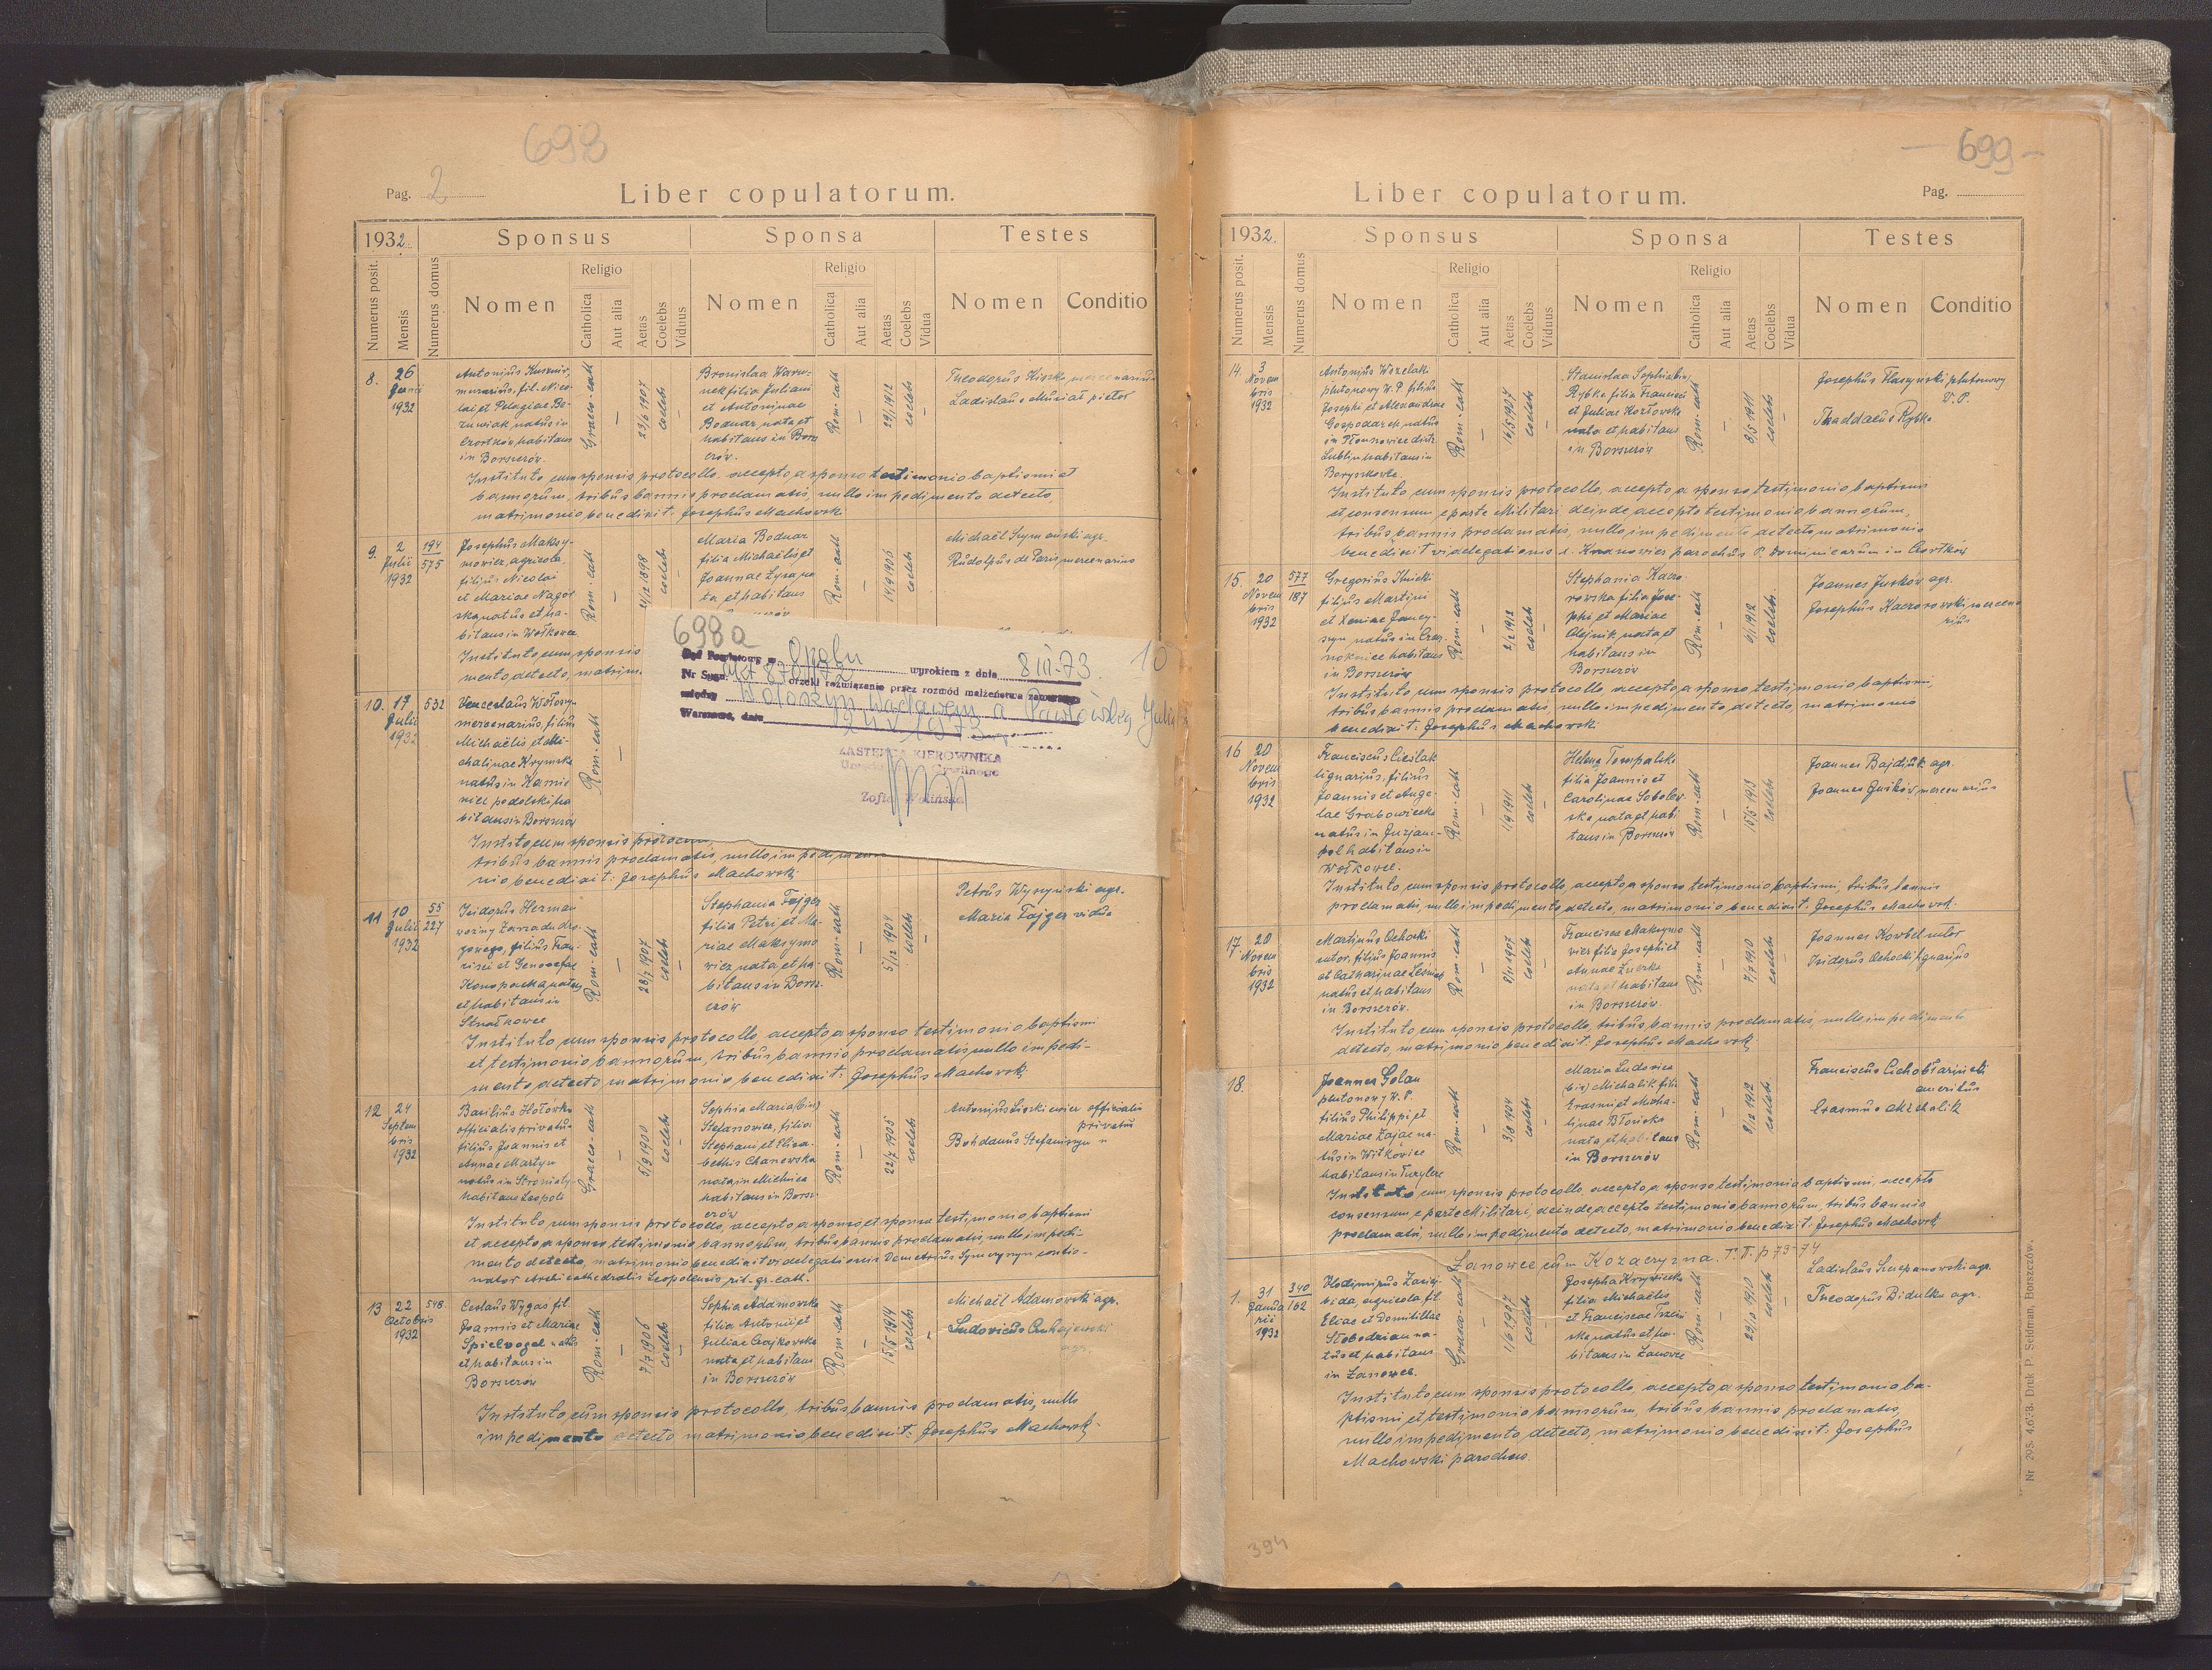 698
Pag. 2
Liber copulatorum.
1932.
Sponsus
Sponsa
Testes
Numerus posit.
Mensis
Numerus domus
Nomen
Religio
Catholica
Aut alia
Aetas
Coelebs
Viduus
Nomen
Religio
Catholica
Aut alia
Aetas
Coelebs
Vidua
Nomen
Conditio
8.
26
Junii
1932
Antonius Kusznir,
murarius, fil. Nico-
lai et Pelagiae Bo-
natus in
Czortków habitans
in Borszczów.
Graeco-cath
–
23/6 1907
coelebs
–
Bronislaa Wawrz-
nek filia Juliani
et Antoninae
Bodnar nata et
habitans in Borsz
czów.
Rom-cath
–
29/1 1912
coelebs
–
Theodorus Kiszka, mercenarius
Ladislaus Musiał pictor
Instituto cum sponsis protocollo, accepto a sponso testimonio baptismi et
bannorum, tribus bannis proclamatis, nullo impedimento detecto,
matrimonio benedixit: Josephus Machowski
9.
2
Julii
1932
194
575
Josephus Maksy-
mowicz, agricola,
filius Nicolai
et Mariae Nagór
ska natus et ha-
bitans in Wołkowce
Rom-cath
–
1898
coelebs
–
Maria Bodnar
filia Michaëlis et
Joannae Łysa na
ta et habitans
Rom-cath
–
14/9 1906
coelebs
–
Michaël Szymański agr.
Rudolfus de Paris, mercenarius
Instituto cum sponsis
mento detecto, matrim
698a
Sąd Powiatowy w Opolu wyrokiem z dnia 8 III-73. 10
Nr Sygn. 870/72 orzekł rozwiązanie przez rozwód małżeństwa zawartego
między Wołoszyn Wacławem a Pawłówską Julią
Warszawa, dnia 1973
ZASTĘPCA KIEROWNIKA
Zofia Wolińska
10.
17
Julii
1932
532
Venceslaus Wołoszyn
mercenarius, filius
Michaëlis et Mi-
chalinae Krymska
natus in Kamie
niec podolski ha
bitans in Borszczów
Rom-cath
–
Instituto cum sponsis protocollo
tribus bannis proclamatis, nullo impedimento
nio benedixit: Josephus Machowski
11
10
Julii
1932
55
227
Isidorus Herman
woźny Zarządu dro-
gowego, filius Fran-
cisci et Genovefae
Konopacka natus
et habitans in
Strałkowce
Rom-cath
–
28/2 1907
coelebs
–
Stephania Fajger
filia Petri et Ma-
riae Maksymo
wicz nata et ha-
bitans in Borsz-
czów
Rom-cath
–
5/12 1904
coelebs
–
Petrus Wyszyński agr.
Maria Fajger vidua
Instituto cum sponsis protocollo, accepto a sponso testimonio baptismi
et testimonio bannorum, tribus bannis proclamatis nullo impedi-
mento detecto matrimonio benedixit: Josephus Machowski
12
24
Septem
bris
1932
Basilius Hołówka
officialis privatus
filius Joannis et
Annae Martyn
natus in
habitans Leopoli
Graeco-cath
–
5/9 1900
coelebs
–
Sophia Maria (bin)
Stefanowicz, filia
Stephani et Eliza-
bethis Chanowska
nata in Mielnica
habitans in Borsz-
czów
Rom-cath
–
22/7 1905
coelebs
–
Antonius officialis
privatus
Bohdanus
Instituto cum sponsis protocollo, accepto a sponso et sponsa testimonio baptismi
et accepto a sponso testimonio bannorum, tribus bannis proclamatis, nullo impedi-
mento detecto, matrimonio benedixit vi delegationis Demetrius contio-
nator Archicathedralis Leopolensis rit-gr. cath.
13
22
Octobris
1932
548
Ceslaus Wygas fil.
Joannis et Mariae
Spielvogel natus
et habitans in
Borszczów
Rom-cath
–
7/7 1906
coelebs
–
Sophia Adamowska
filia Antonii et
Juliae Czajkowska
nata et habitans
in Borszczów
Rom-cath
–
15/5 1914
coelebs
–
Michaël Adamowski agr.
Ludovicus
agr.
Instituto cum sponsis protocollo, tribus bannis proclamatis, nullo
impedimento detecto matrimonio benedixit: Josephus Machowski
– 699 –
Liber copulatorum.
Pag.
1932.
Sponsus
Sponsa
Testes
Numerus posit.
Mensis
Numerus domus
Nomen
Religio
Catholica
Aut alia
Aetas
Coelebs
Viduus
Nomen
Religio
Catholica
Aut alia
Aetas
Coelebs
Vidua
Nomen
Conditio
14.
3
Novem
bris
1932
Antonius Wszelaki
plutonowy W.P. filius
Josephi et Alexandrae
Gospodarek natus
in
Lublin habitans in
Boryszkowce
Rom-cath
–
16/5 1907
coelebs
–
Stanislaa Sophia bin,
Rybka filia Francisci
et Juliae Kozłowska
nata et habitans
in Borszczów
Rom-cath
–
8/5 1911
coelebs
–
Josephus plutonowy
W.P.
Thaddaeus Rybka
Instituto cum sponsis protocollo, accepto a sponso testimonio baptismi
et consensum e parte Militari deinde accepto testimonio bannorum,
tribus bannis proclamatis, nullo impedimento detecto, matrimonio
benedixit vi delegationis parochus P. Dominicanum in Czortków
15.
20
Novem
bris
1932
577
187
Gregorius Ilnicki
filius Martini
et Xeniae
natus in Czar-
nokońce habitans
in Borszczów
Rom-cath
–
2/2 1912
coelebs
–
Stephania Kaczo
rowska filia Jose-
phi et Mariae
Olejnik nata et
habitans in
Borszczów
Rom-cath
–
6/1 1912
coelebs
–
Joannes Juśków agr.
Josephus Kaczorowski mercena
rius
Instituto cum sponsis protocollo, accepto a sponso testimonio baptismi,
tribus bannis proclamatis nullo impedimento detecto, matrimonio
benedixit: Josephus Machowski
16
20
Novem
bris
1932
Franciscus Cieślak
lignarius, filius
Joannis et Ange-
lae Grabowiecka
natus in Juzjam-
pol habitans in
Wołkowce.
Rom-cath
–
1/9 1911
coelebs
–
Helena Toropalska
filia Joannis et
Carolinae Sobolew
ska nata et habi
tans in Borszczów
Rom-cath
–
15/5 1913
coelebs
–
Joannes Bajdiuk agr.
Joannes Juśków mercenarius
Instituto cum sponsis protocollo, accepto a sponso testimonio baptismi, tribus bannis
proclamatis, nullo impedimento detecto, matrimonio benedixit: Josephus Machowski
17.
20
Novem
bris
1932
Martinus Ochocki
sutor, filius Joannis
et Catharinae Leśniak
natus et habitans
in Borszczów.
Rom-cath
–
8/11 1907
coelebs
–
Francisca Maksymo
wicz filia Josephi et
Annae Żurska
nata et habitans
in Borszczów.
Rom-cath
–
7/7 1910
coelebs
–
Joannes Kowbel sutor
Isidorus Ochocki lignarius
Instituto cum sponsis protocollo, tribus bannis proclamatis, nullo impedimento
detecto, matrimonio benedixit: Josephus Machowski
18.
Joannes Golan
plutonowy W.P.
filius Philippi et
Mariae Zając na-
tus in Witkowice
habitans in Turylcze
Rom-cath
–
3/8 1904
coelebs
–
Maria Ludovica
(bin) Michalik filia
Erasmi et Micha-
linae Błońska
nata et habitans
in Borszczów
Rom-cath
–
8/12 1912
coelebs
–
Franciscus
emeritus
Erasmus Michalik
Instituto cum sponsis protocollo, accepto a sponso testimonio baptismi, accepto
consensum e parte Militari, deinde accepto testimonio bannorum, tribus bannis
proclamatis, nullo impedimento detecto, matrimonio benedixit: Josephus Machowski
Łanowce cum Kozaczyzna. T. II. p 73-74
1.
31
Janua
rii
1932
340
162
Wlodimirus
agricola, fil.
Eliae et Domitillae
Słobodzian na-
tus et habitans
in Łanowce.
Graeco-cath
–
1/6 1907
coelebs
–
Josepha Krywiecka
filia Michaëlis
et Franciscae
ska natus et ha-
bitans in Łanowce
Rom-cath
–
29/10 1910
coelebs
–
Ladislaus Szczepanowski agr.
Theodorus Bidulka agr.
Instituto cum sponsis protocollo, accepto a sponso testimonio ba-
ptismi et testimonio bannorum, tribus bannis proclamatis,
nullo impedimento detecto, matrimonio benedixit: Josephus
Machowski parochus.
394
Druk P. Seidman, Borszczów.